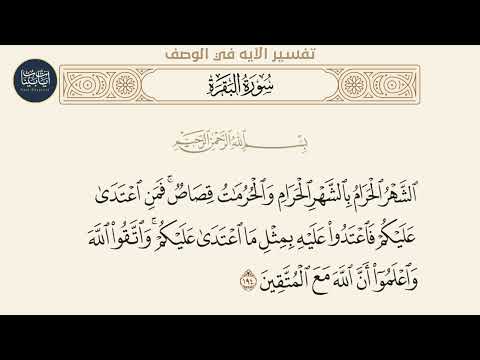 تفسير الآيه في الوصف
سُورَةُ البَقَرَةِ
بِسْمِ اللَّهِ الرَّحْمَٰنِ الرَّحِيمِ
ٱلشَّهْرُ ٱلْحَرَامُ بِٱلشَّهْرِ ٱلْحَرَامِ وَٱلْحُرُمَٰتُ قِصَاصٌۚ فَمَنِ ٱعْتَدَىٰ
عَلَيْكُمْ فَٱعْتَدُوا۟ عَلَيْهِ بِمِثْلِ مَا ٱعْتَدَىٰ عَلَيْكُمْۚ وَٱتَّقُوا۟ ٱللَّهَ
وَٱعْلَمُوٓا۟ أَنَّ ٱللَّهَ مَعَ ٱلْمُتَّقِينَ ١٩٤